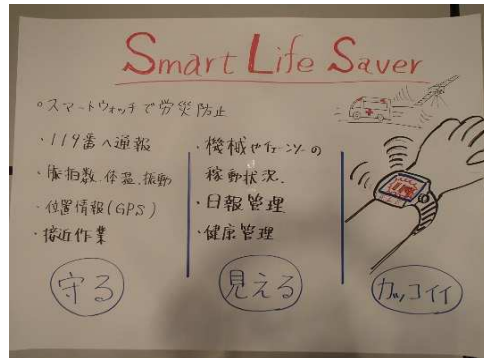 Smart Life Saver
○スマートウォッチで労災防止
・119番へ通報
・脈拍数、体温、振動
・位置情報(GPS)
・接近作業
守る
・機械やチェーンソーの
稼動状況、
・日報管理
・健康管理
見える
119
カッコイイ